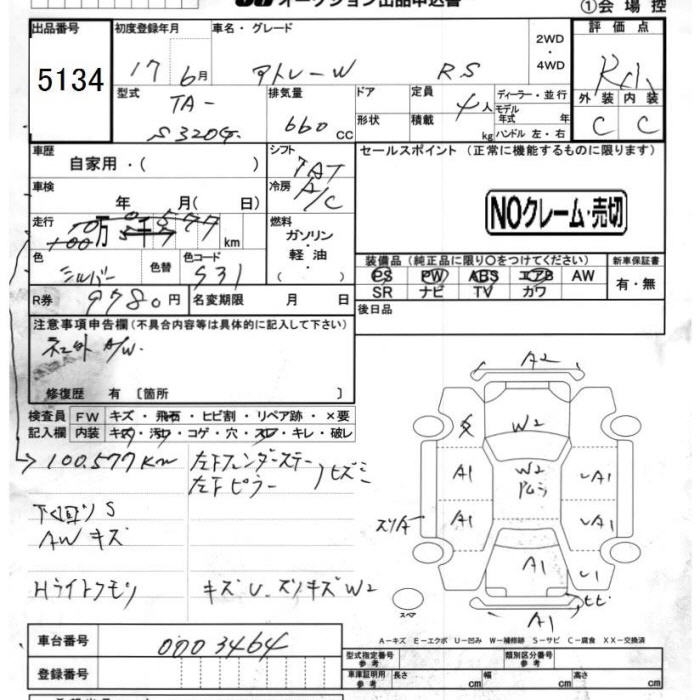 オークション出品申込書
①会場控
出品番号
5134
初度登録年月
17 6月
車名・グレード
アトレーW RS
2WD
・
4WD
評価点
外装 内装
C C
型式
TA-
S320G
排気量
660 cc
ドア
形状
定員
4人
積載 kg
ディーラー・並行
モデル
年式 年
ハンドル 左・右
車歴
自家用・( )
シフト
冷房
A/C
セールスポイント (正常に機能するものに限ります)
NOクレーム・売切
車検
年 月( 日)
走行
万 千 km
燃料
ガソリン
・
軽油
( )
色
シルバー
色替
色コード
S31
装備品(純正品に限り○をつけてください)
PS PW ABS エアB AW
SR ナビ TV カワ
新車保証書
有・無
R券
9780円
名変期限 月 日
後日品
注意事項申告欄(不具合内容等は具体的に記入して下さい)
A/W.
修復歴 有〔箇所 〕
検査員
記入欄
FW キズ・飛石・ヒビ割・リペア跡・×要
内装 キズ・汚れ・コゲ・穴・スレ・キレ・破レ
100,577Km
左フェンダーステー
左Fピラー
ヒズミ
下回りS
AWキズ
Hライトクモリ
キズU.ズリキズW2
A2
W2
A1
W2
A1
A1
A1
ズリA
A1
U1
A1
スペア
A-キズ E-エクボ U-凹み W-補修跡 S-サビ C-腐食 XX-交換済
車台番号
0003464
登録番号
型式指定番号
参考
類別区分番号
参考
車庫証明用
参考
長さ cm
幅 cm
高さ cm